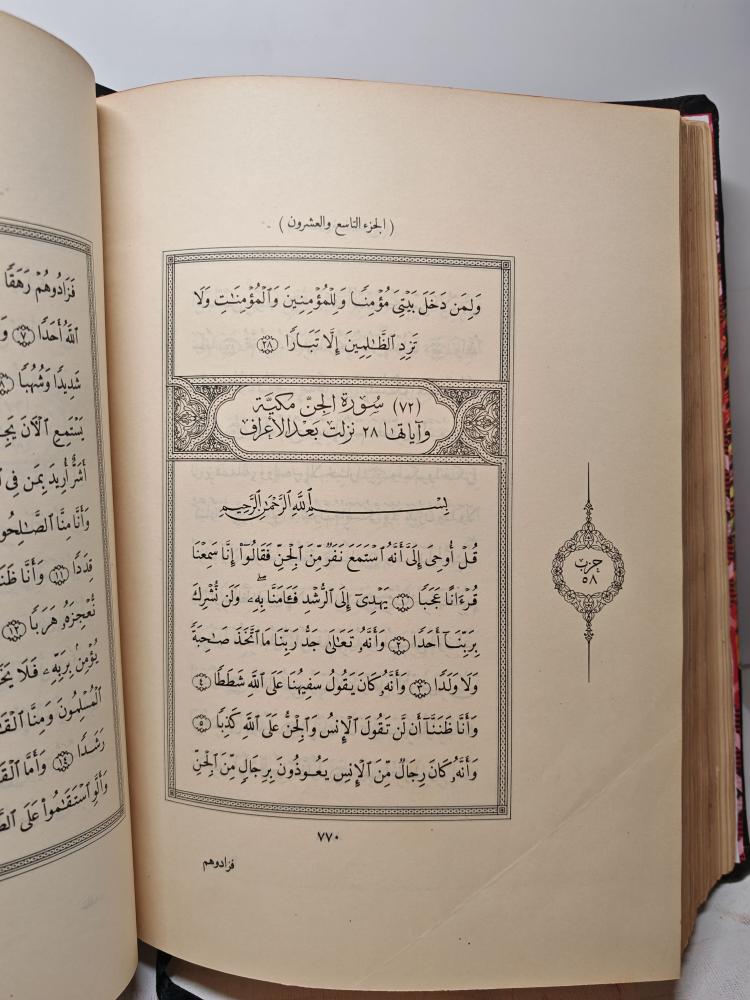 ( الجزء التاسع والعشرون )
وَلِمَن دَخَلَ بَيْتِيَ مُؤْمِنًا وَلِلْمُؤْمِنِينَ وَالْمُؤْمِنَاتِ وَلَا
تَزِدِ الظَّالِمِينَ إِلَّا تَبَارًا ٢٨
(٧٢) سورة الجن مكية
وآياتها ٢٨ نزلت بعد الأعراف
بِسْمِ اللَّهِ الرَّحْمَٰنِ الرَّحِيمِ
قُلْ أُوحِيَ إِلَيَّ أَنَّهُ اسْتَمَعَ نَفَرٌ مِّنَ الْجِنِّ فَقَالُوٓا إِنَّا سَمِعْنَا
قُرْءَانًا عَجَبًا ١ يَهْدِيٓ إِلَى الرُّشْدِ فَـَٔامَنَّا بِهِۦ وَلَن نُّشْرِكَ
بِرَبِّنَآ أَحَدًا ٢ وَأَنَّهُۥ تَعَالَىٰ جَدُّ رَبِّنَا مَا اتَّخَذَ صَاحِبَةً
وَلَا وَلَدًا ٣ وَأَنَّهُۥ كَانَ يَقُولُ سَفِيهُنَا عَلَى اللَّهِ شَطَطًا ٤
وَأَنَّا ظَنَنَّآ أَن لَّن تَقُولَ الْإِنسُ وَالْجِنُّ عَلَى اللَّهِ كَذِبًا ٥
وَأَنَّهُۥ كَانَ رِجَالٌ مِّنَ الْإِنسِ يَعُوذُونَ بِرِجَالٍ مِّنَ الْجِنِّ
حزب
٥٨
٧٧٠
فزادوهم
فَزَادُوهُمْ رَهَقًا
اللَّهُ أَحَدًا ٧
شَدِيدًا وَشُهُبًا ٨
يَسْتَمِعِ الْآنَ
أَشَرٌّ أُرِيدَ بِمَن فِي
وَأَنَّا مِنَّا
قِدَدًا ١١ وَأَنَّا
نُّعْجِزَهُۥ هَرَبًا ١٢
يُؤْمِنۢ بِرَبِّهِۦ فَلَا
الْمُسْلِمُونَ وَمِنَّا
رَشَدًا ١٤ وَأَمَّا
وَأَلَّوِ اسْتَقَامُوا عَلَى